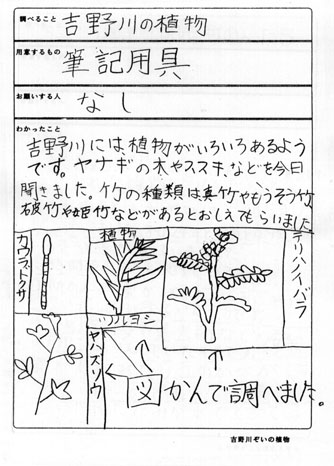 調べること 吉野川の植物
用意するもの 筆記用具
お願いする人 なし
わかったこと
吉野川には、植物がいろいろあるよう
です。ヤナギの木やススキ、などを今日
聞きました。竹の種類は真竹やもうそう竹、
破竹や姫竹などがあるとおしえてもらいました。
カワラヨモギクサ
植物
ツルヨシ
テリハノイバラ
ヤハズソウ
図かんで調べました。
吉野川ぞいの植物